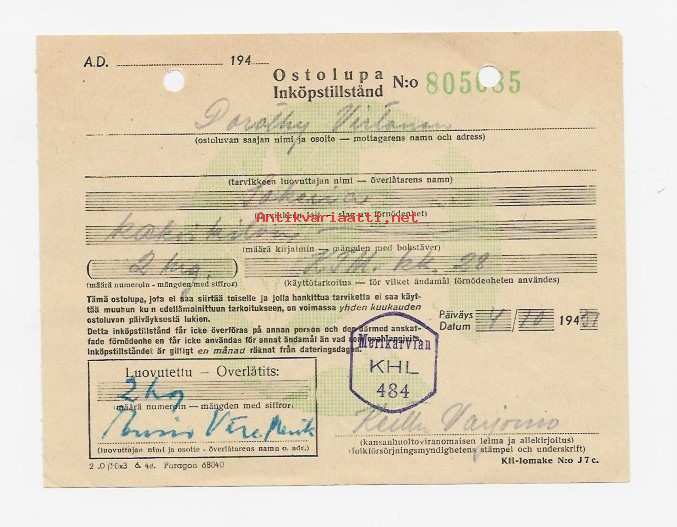 A.D. 194
Ostolupa
Inköpstillstånd
N:o 805035
Dorothy Virtanen
(ostoluvan saajan nimi ja osoite — mottagarens namn och adress)
(tarvikkeen luovuttajan nimi — överlåtarens namn)
Sokeria
slag av förnödenhet)
Antikvariaatti.net
kaksi kiloa
(määrä kirjaimin — mängden med bokstäver)
2 kg.
(määrä numeroin - mängden med siffror)
(käyttötarkoitus — för vilket ändamål förnödenheten användes)
Tämä ostolupa, jota ei saa siirtää toiselle ja jolla hankittua tarviketta ei saa käyt-
tää muuhun kuin edellämainittuun tarkoitukseen, on voimassa yhden kuukauden
ostoluvan päiväyksestä lukien.
Detta inköpstillstånd får icke överföras på annan person och den därmed anskaf-
fade förnödenheten får icke användas för annat ändamål än vad som ovan angivits.
Inköpstillståndet är giltigt en månad räknat från dateringsdagen.
Päiväys
Datum
4/10 194
Merikarvian
KHL
484
Luovutettu — Overlåtits:
2 kg
määrä numeroin — mängden med siffror
(luovuttajan nimi ja osoite - överlåtarens namn o. adr.)
(kansanhuoltoviranomaisen leima ja allekirjoitus)
(folkförsörjningsmyndighetens stämpel och underskrift)
Paragon 68040
KH-lomake N:o J 7 c.